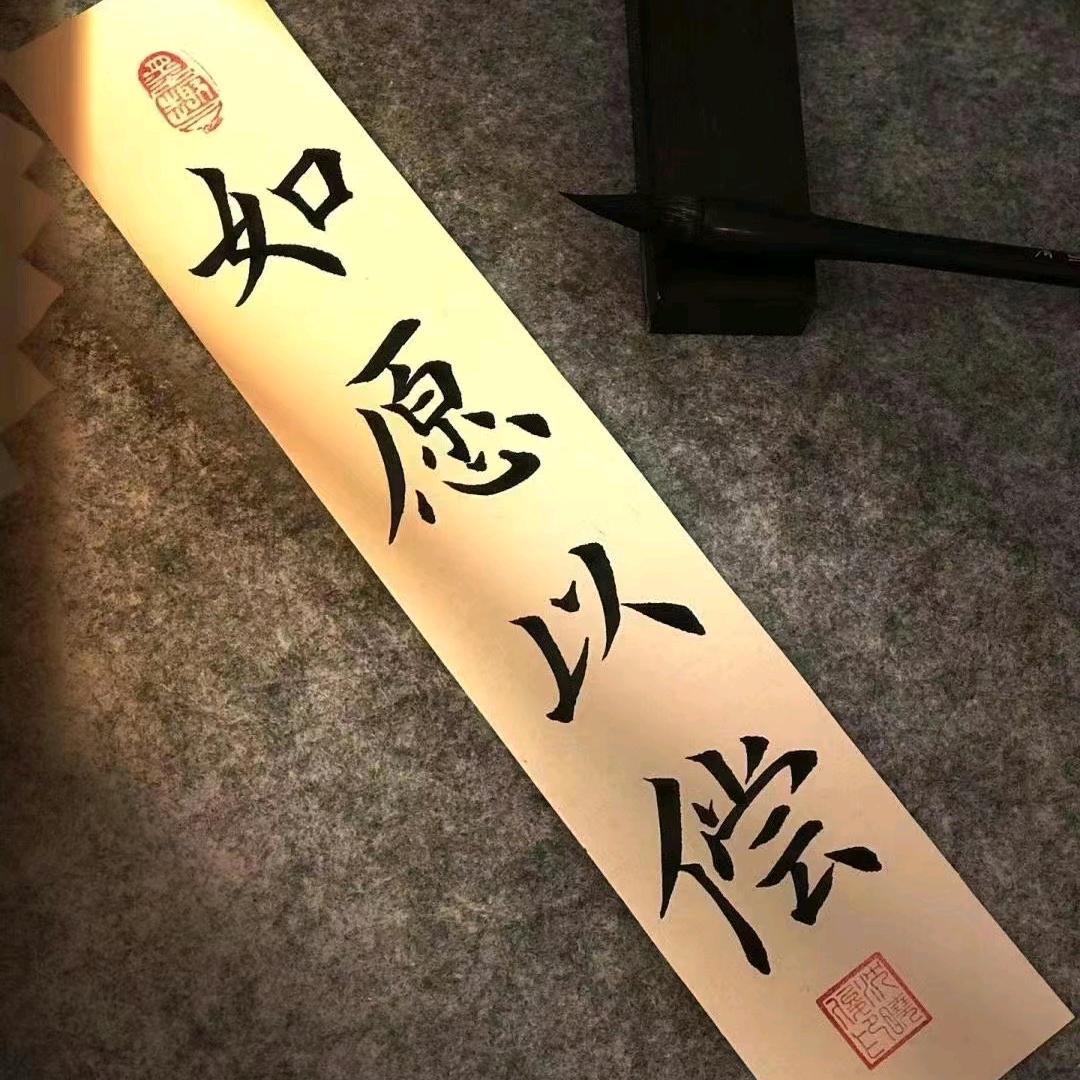 如愿以偿